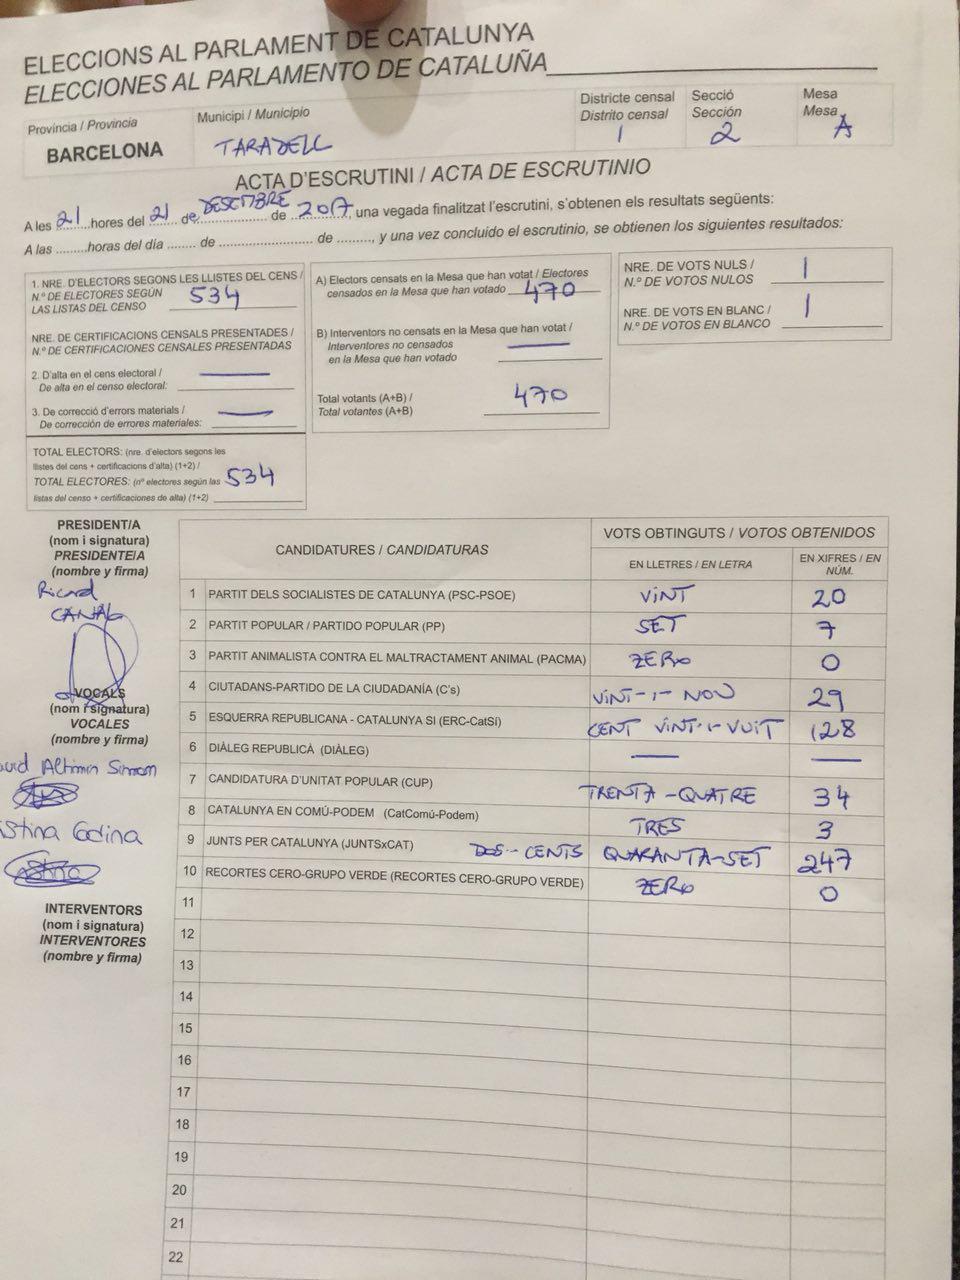 ELECCIONS AL PARLAMENT DE CATALUNYA
ELECCIONES AL PARLAMENTO DE CATALUÑA
Província / Provincia
BARCELONA
Municipi / Municipio
TARADELL
Districte censal
Distrito censal
1
Secció
Sección
2
Mesa
Mesa
A
ACTA D'ESCRUTINI / ACTA DE ESCRUTINIO
A les 21 hores del 21 de DESEMBRE de 2017, una vegada finalitzat l'escrutini, s'obtenen els resultats següents:
A las .........horas del día ........ de ......................... de ........., y una vez concluido el escrutinio, se obtienen los siguientes resultados:
1. NRE. D'ELECTORS SEGONS LES LLISTES DEL CENS /
N.º DE ELECTORES SEGÚN
LAS LISTAS DEL CENSO 534
NRE. DE CERTIFICACIONS CENSALS PRESENTADES /
N.º DE CERTIFICACIONES CENSALES PRESENTADAS
2. D'alta en el cens electoral / —
De alta en el censo electoral:
3. De correcció d'errors materials / —
De corrección de errores materiales:
TOTAL ELECTORS: (nre. d'electors segons les
llistes del cens + certificacions d'alta) (1+2) /
TOTAL ELECTORES: (nº electores según las 534
listas del censo + certificaciones de alta) (1+2)
A) Electors censats en la Mesa que han votat / Electores
censados en la Mesa que han votado 470
B) Interventors no censats en la Mesa que han votat /
Interventores no censados —
en la Mesa que han votado
Total votants (A+B) / 470
Total votantes (A+B)
NRE. DE VOTS NULS / 1
N.º DE VOTOS NULOS
NRE. DE VOTS EN BLANC / 1
N.º DE VOTOS EN BLANCO
PRESIDENT/A
(nom i signatura)
PRESIDENTE/A
(nombre y firma)
Ricard
CANAL
VOCALS
(nom i signatura)
VOCALES
(nombre y firma)
Altimin
istina Codina
INTERVENTORS
(nom i signatura)
INTERVENTORES
(nombre y firma)
CANDIDATURES / CANDIDATURAS
VOTS OBTINGUTS / VOTOS OBTENIDOS
EN LLETRES / EN LETRA
EN XIFRES / EN
NÚM.
1 PARTIT DELS SOCIALISTES DE CATALUNYA (PSC-PSOE) VINT 20
2 PARTIT POPULAR / PARTIDO POPULAR (PP) SET 7
3 PARTIT ANIMALISTA CONTRA EL MALTRACTAMENT ANIMAL (PACMA) ZERO 0
4 CIUTADANS-PARTIDO DE LA CIUDADANÍA (C's) VINT-I-NOU 29
5 ESQUERRA REPUBLICANA - CATALUNYA SI (ERC-CatSí) CENT VINT-I-VUIT 128
6 DIÀLEG REPUBLICÀ (DIÀLEG) — —
7 CANDIDATURA D'UNITAT POPULAR (CUP) TRENTA-QUATRE 34
8 CATALUNYA EN COMÚ-PODEM (CatComú-Podem) TRES 3
9 JUNTS PER CATALUNYA (JUNTSxCAT) DOS-CENTS QUARANTA-SET 247
10 RECORTES CERO-GRUPO VERDE (RECORTES CERO-GRUPO VERDE) ZERO 0
11
12
13
14
15
16
17
18
19
20
21
22